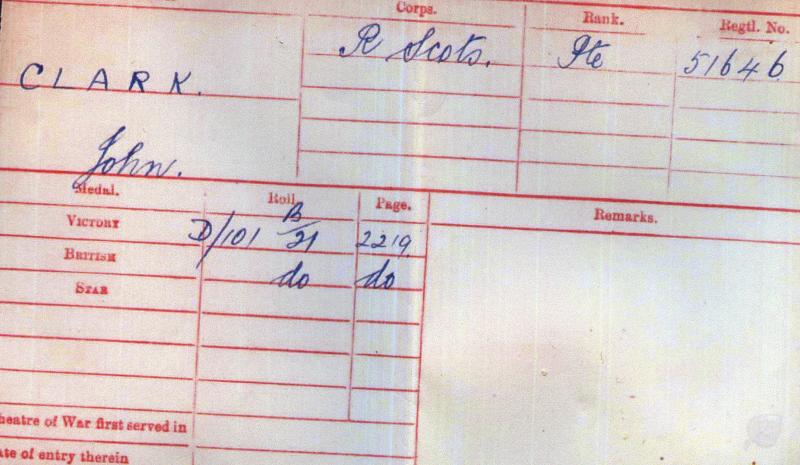 Corps. Rank. Regtl. No.
CLARK. R Scots. Pte 51646
John.
Medal. Roll Page. Remarks.
VICTORY D/101 B/21 2219
BRITISH do do
STAR
heatre of War first served in
ate of entry therein